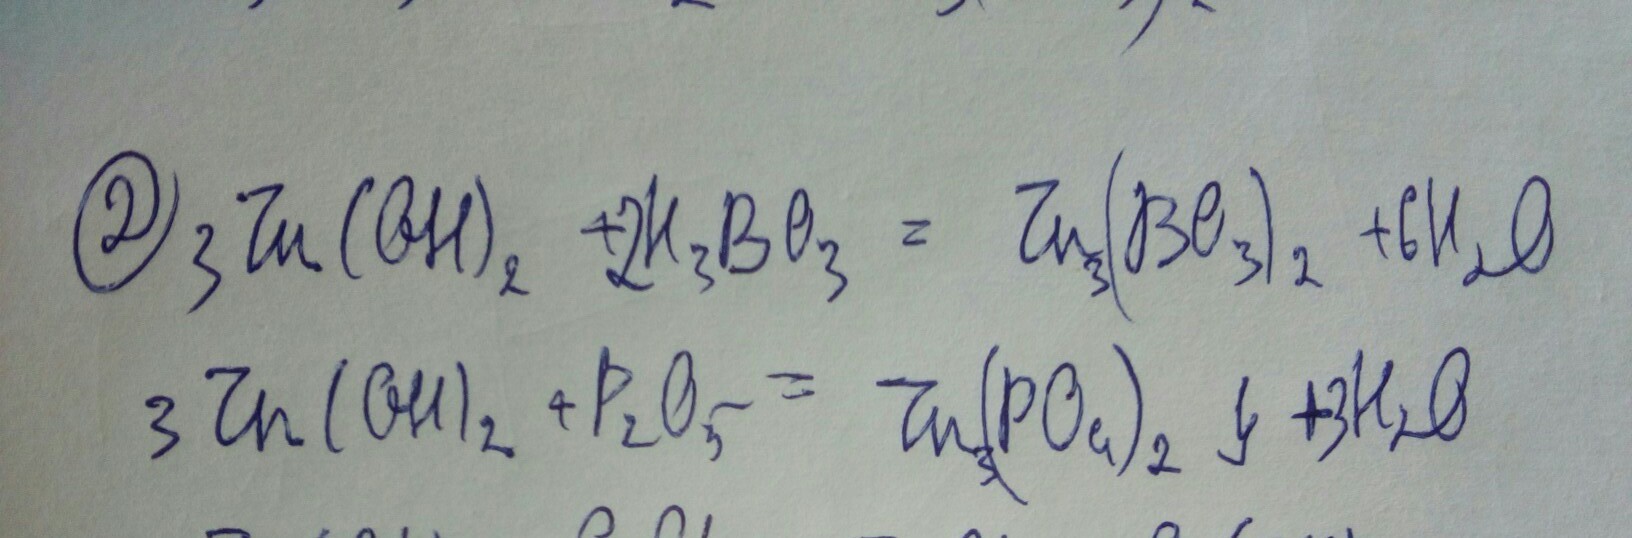 ② 3Zn(OH)₂ + 2H₃BO₃ = Zn₃(BO₃)₂ + 6H₂O
3Zn(OH)₂ + P₂O₅ = Zn₃(PO₄)₂ ↓ + 3H₂O